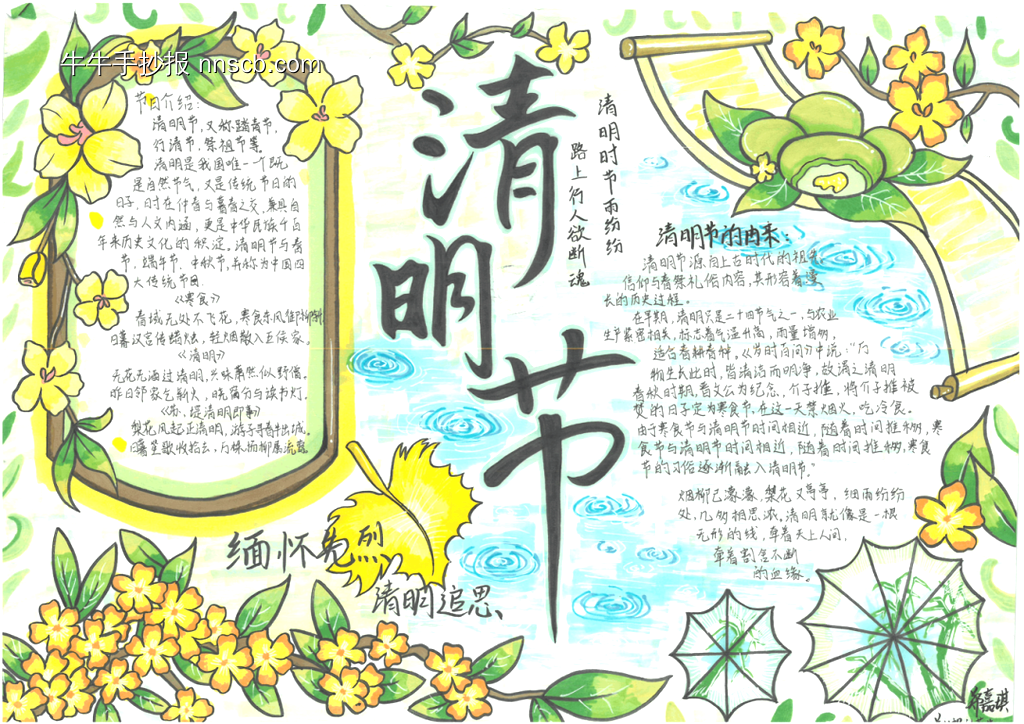 牛牛手抄报 nnscb.com
节日介绍:
清明节,又称踏青节,
行清节,祭祖节等。
清明是我国唯一一个既
是自然节气,又是传统节日的
日子,时在仲春与暮春之交,兼具自
然与人文内涵,更是中华民族千百
年来历史文化的积淀。清明节与春
节、端午节、中秋节,并称为中国四
大传统节日.
《寒食》
春城无处不飞花,寒食东风御柳斜
日暮汉宫传蜡烛,轻烟散入五侯家。
《清明》
无花无酒过清明,兴味萧然似野僧。
昨日邻家乞新火,晓窗分与读书灯。
堤清明即事》
梨花风起正清明,游子寻春半出城。
日暮笙歌收拾去,万株杨柳属流莺
清明节
清明时节雨纷纷
路上行人欲断魂
缅怀先烈
清明追思
清明节的由来:
清明节源自上古时代的祖先
信仰与春祭礼俗内容,其形容着漫
长的历史过程。
在早期,清明只是二十四节气之一,与农业
生产紧密相关,标志着气温升高,雨量增多,
适合春耕春种。《岁时百问》中说:“万
物生长此时,皆清洁而明净,故谓之清明
春秋时期,晋文公为纪念,介子推,将介子推被
焚的日子定为寒食节,在这一天禁烟火,吃冷食。
由于寒食节与清明节时间相近,随着时间推移,寒
食节与清明节时间相近,随着时间推移,寒食
节的习俗逐渐融入清明节。”
烟柳已濛濛,梨花又等等,细雨纷纷
处,几多相思浓。清明就像是一根
无形的线,牵着天上人间,
牵着割舍不断
的血缘。
嘉琪